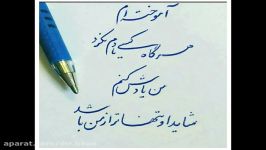 آموخته ام
هرگاه کسی یادم نکرد
من یادش کنم
شاید او تنها تر از من باشد
aparat.com/